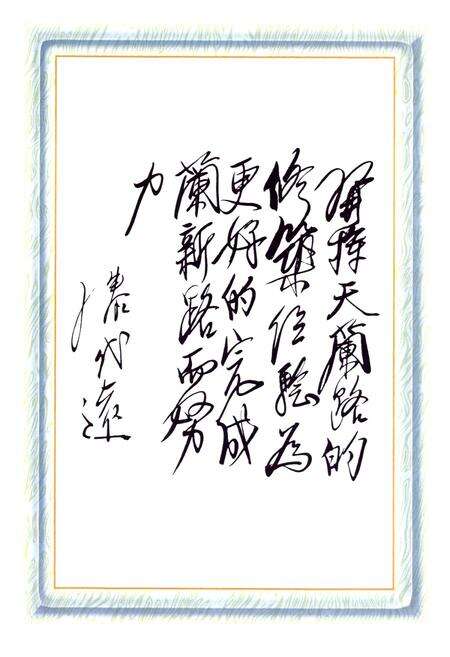 發揮天蘭路的
修築经驗為
更好的完成
蘭新路而努
力
滕代遠